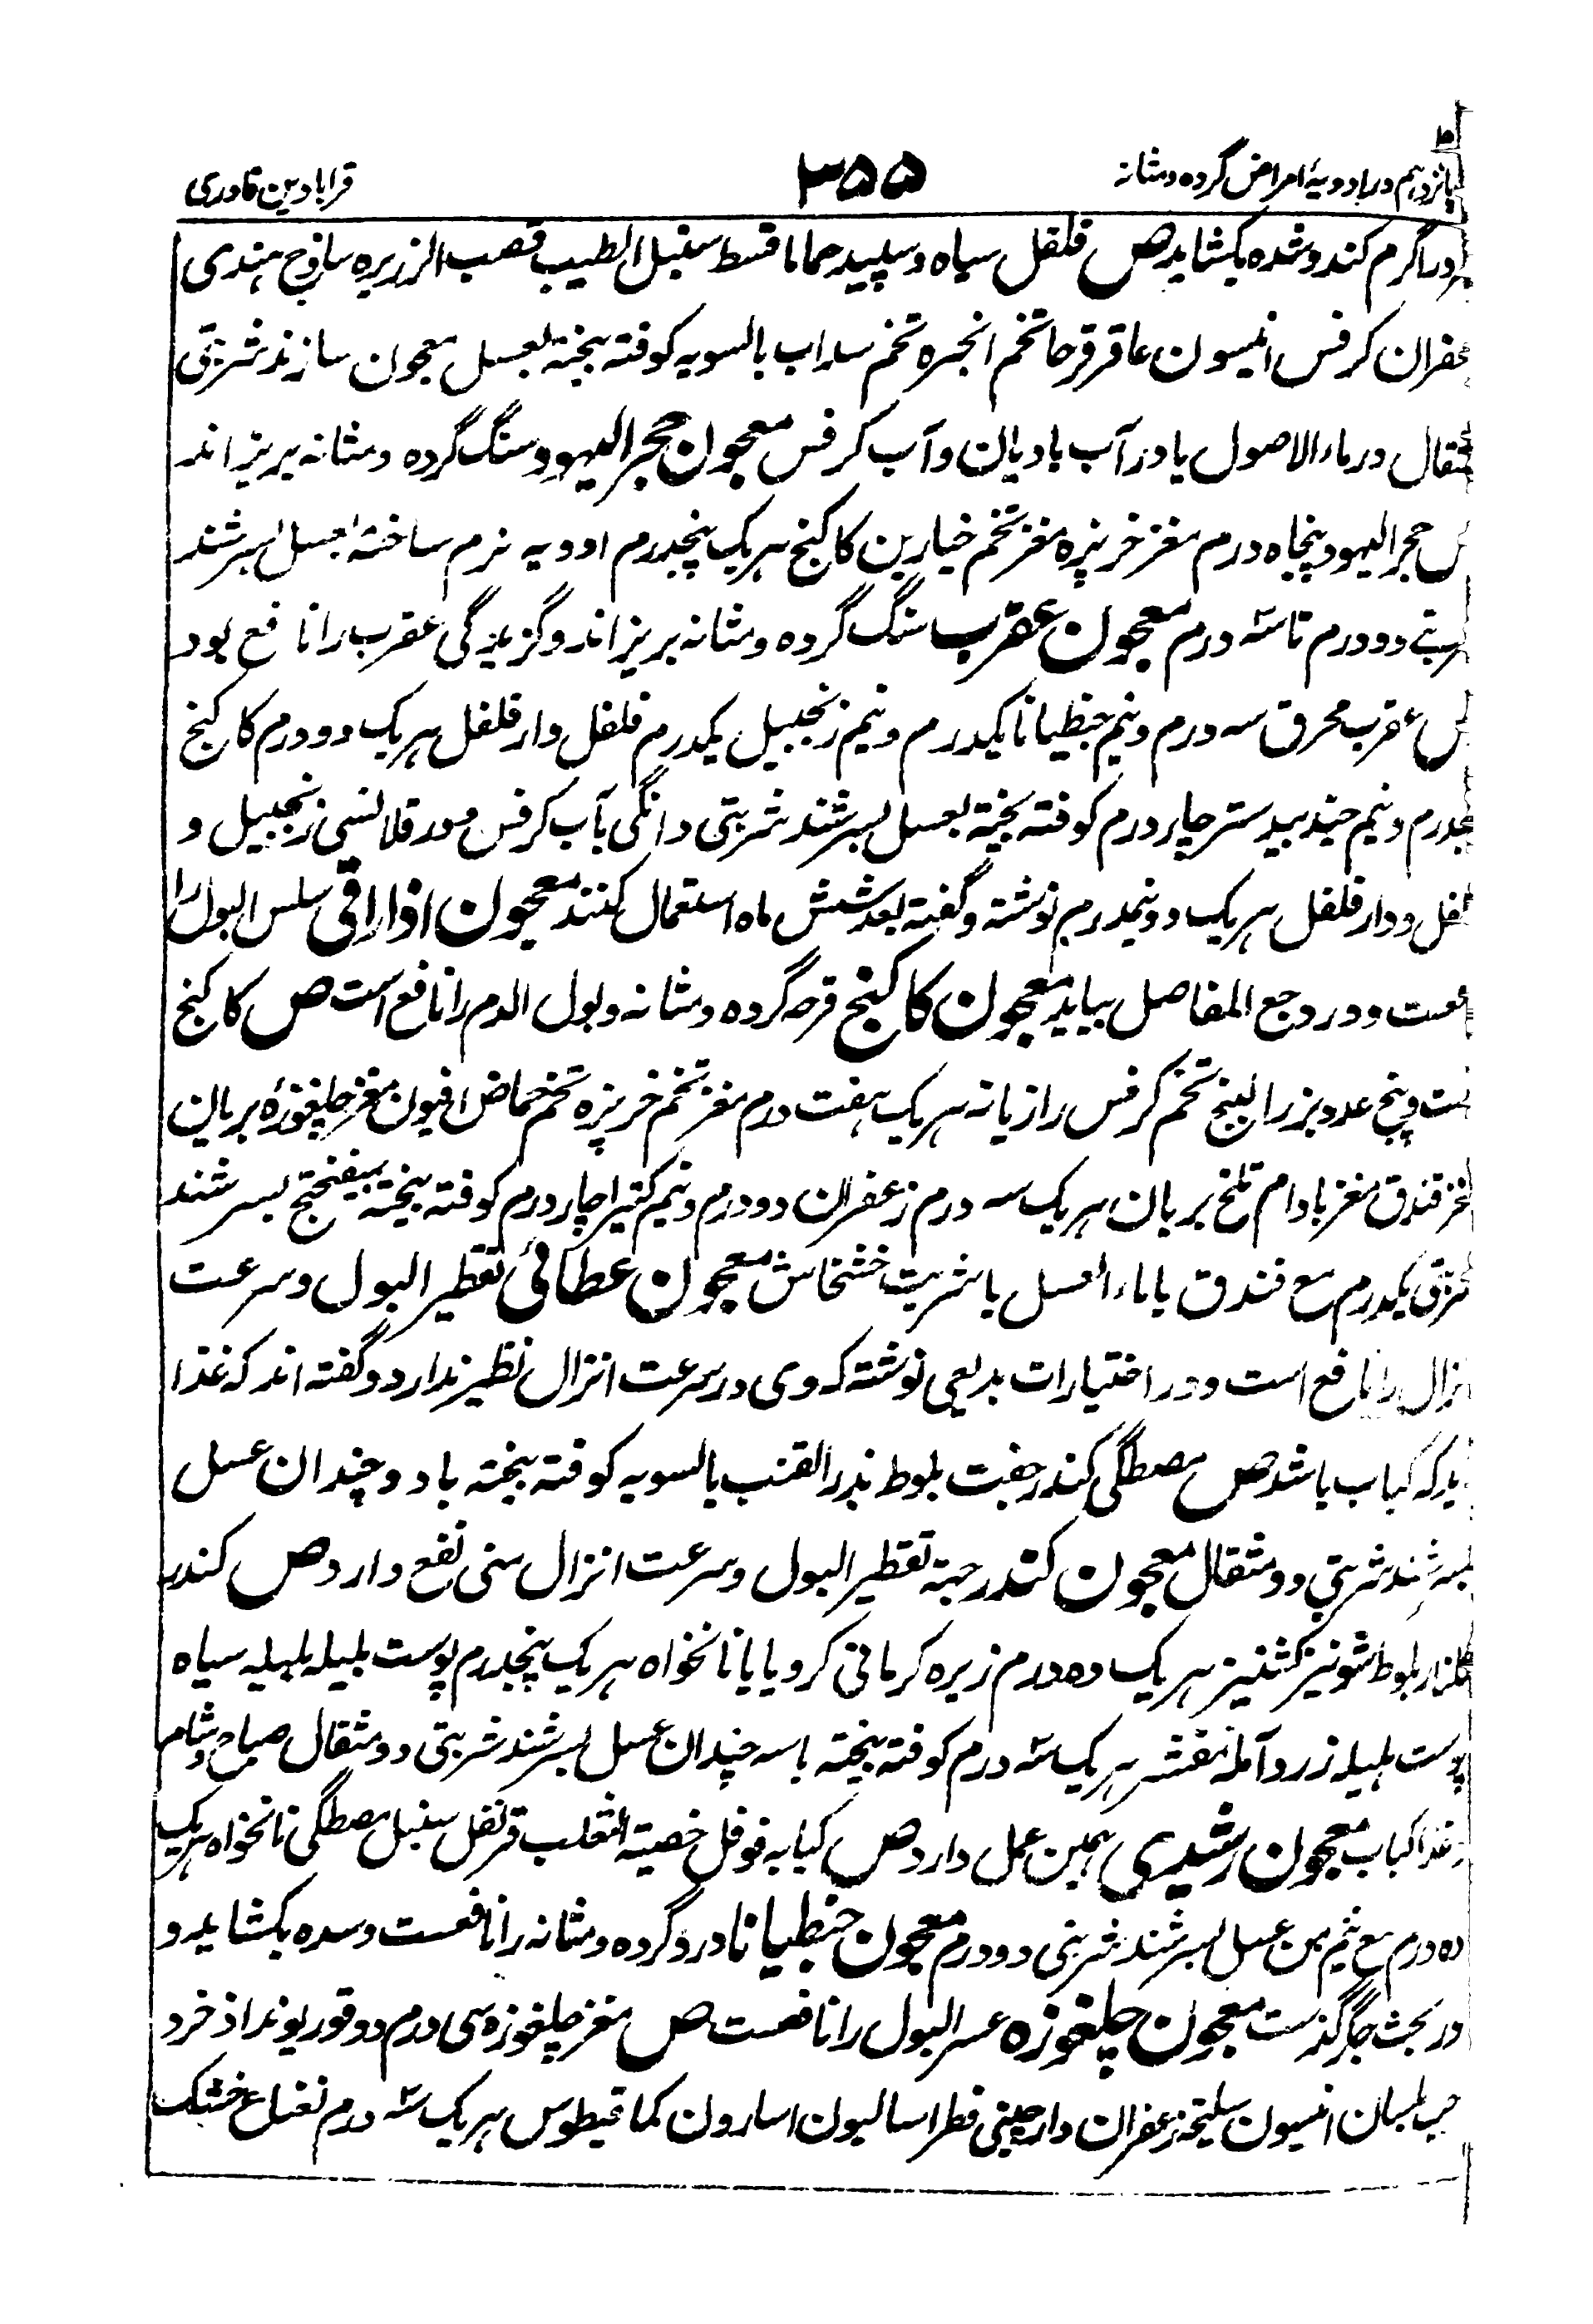 پانزدهم در ادویهٔ امراض گرده و مثانه ۳۵۵ قرابادین قادری
گرم کند و شده بکشاید ص فلفل سیاه و سپید حماما قسط سنبل الطیب قصب الزریره ساذج هندی
کرفس انیسون عاقرقرحا تخم انجره تخم سداب بالسویه کوفته بیخته بعسل معجون سازند شربتی
مثقال در ماء الاصول یا در آب بادیان و آب کرفس معجون حجر الیهود سنگ گرده و مثانه بریزاند
حجر الیهود پنجاه درم مغز خرپزه مغز تخم خیارین کاکنج هریک پنجدرم ادویه نرم ساخته بعسل بسرشند
دو درم تا سه درم معجون عقرب سنگ گرده و مثانه بریزاند و گزیدگی عقرب را نافع بود
عقرب محرق سه درم و نیم جنطیانا یکدرم و نیم زنجبیل یکدرم فلفل دار فلفل هریک دو درم کاکنج
و نیم جندبیدستر چار درم کوفته بیخته بعسل بسرشند شربتی دانگی بآب کرفس و در قلانسی زنجبیل و
و دار فلفل هریک دو نیمدرم نوشته و گفته بعد شش ماه استعمال کنند معجون اذاراقی سلس البول را
و در وجع المفاصل بیاید معجون کاکنج قرحه گرده و مثانه و بول الدم را نافع است ص کاکنج
و پنج عدد بزر البنج تخم کرفس رازیانه هریک هفت درم مغز تخم خرپزه تخم حماض افیون مغز چلغوزهٔ بریان
فندق مغز بادام تلخ بریان هریک سه درم زعفران دو درم و نیم کتیرا چار درم کوفته بیخته بمیفختج بسرشند
یکدرم مع فندق با ماء العسل یا شربت خشخاش معجون عطائی تقطیر البول و سرعت
را نافع است و در اختیارات بدیعی نوشته که وی در سرعت انزال نظیر ندارد و گفته اند که غذا
که کباب باشد ص مصطگی کندر جفت بلوط بذر القنب بالسویه کوفته بیخته با دو چندان عسل
بسرشند شربتی دو مثقال معجون کندر جهة تقطیر البول و سرعت انزال منی نفع دارد ص کندر
گلنار بلوط شونیز کشنیز هریک ده درم زیره کرمانی کرویا نانخواه هریک پنجدرم پوست بلیله هلیله سیاه
پوست هلیله زرد آمله هریک سه درم کوفته بیخته با سه چندان عسل بسرشند شربتی دو مثقال صباح و شام
غذا کباب معجون رشیدی همین عمل دارد ص کبابه فوفل خصیة الثعلب قرنفل سنبل مصطگی نانخواه هریک
ده درم مع نیم من عسل بسرشند شربتی دو درم معجون جنطیانا درد گرده و مثانه را نافعست و سده بکشاید و
در بحث جگر گذست معجون چلغوزه عسر البول را نافعست ص مغز چلغوزه سی درم دوقو ریوند اذخر د
حب بلسان انیسون سلیخه زعفران دارچینی فطراسالیون اسارون کمافیطوس هریک سه درم نعناع خشک